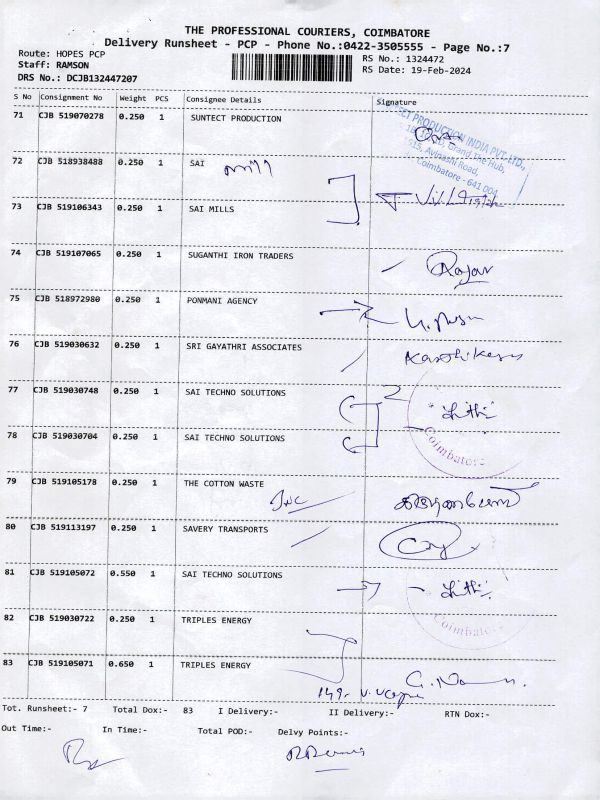 THE PROFESSIONAL COURIERS, COIMBATORE
Delivery Runsheet - PCP - Phone No.:0422-3505555 - Page No.:7
Route: HOPES PCP
Staff: RAMSON
DRS No.: DCJB132447207
RS No.: 1324472
RS Date: 19-Feb-2024
S No Consignment No Weight PCS Consignee Details Signature
71 CJB 519070278 0.250 1 SUNTECT PRODUCTION
PRODUCTION INDIA PVT. LTD.,
Grand The Hub,
Avinashi Road,
Coimbatore - 641 004
72 CJB 518938488 0.250 1 SAI mill
73 CJB 519106343 0.250 1 SAI MILLS
74 CJB 519107065 0.250 1 SUGANTHI IRON TRADERS
75 CJB 518972980 0.250 1 PONMANI AGENCY
76 CJB 519030632 0.250 1 SRI GAYATHRI ASSOCIATES
77 CJB 519030748 0.250 1 SAI TECHNO SOLUTIONS
78 CJB 519030704 0.250 1 SAI TECHNO SOLUTIONS
Coimbatore
79 CJB 519105178 0.250 1 THE COTTON WASTE
80 CJB 519113197 0.250 1 SAVERY TRANSPORTS
81 CJB 519105072 0.550 1 SAI TECHNO SOLUTIONS
Coimbatore
82 CJB 519030722 0.250 1 TRIPLES ENERGY
83 CJB 519105071 0.650 1 TRIPLES ENERGY
Tot. Runsheet:- 7 Total Dox:- 83 I Delivery:- II Delivery:- RTN Dox:-
Out Time:- In Time:- Total POD:- Delvy Points:-